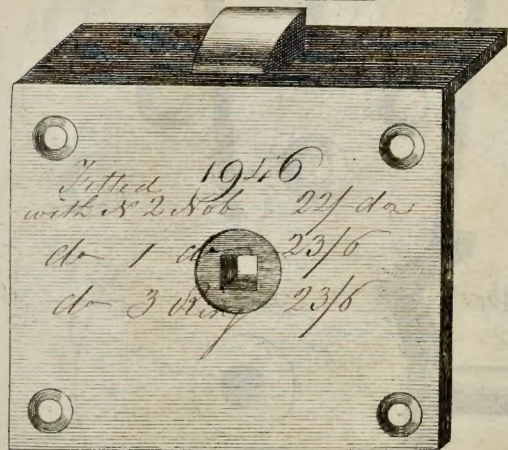 1946
Fitted
with N 2 Nob 22/ doz
do 1 do 23/6
do 3 Ring 23/6